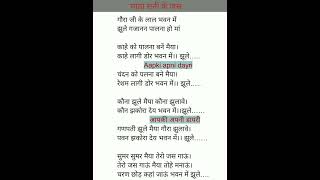 माता रानी के जस
गौरा जी के लाल भवन में
झूले गजानन पालना हो मां
काहे को पालना बने मैया।
काहे लागी डोर भवन में।। झूले.....
Aapki apni dayri
चंदन को पलना बने मैया।
रेशम लागी डोर भवन में।। झूले.....
कौना झूले मैया कौना झुलावे।
कौन झकोरा देय भवन में।।झूले.......
आपकी अपनी डायरी
गणपती झूले मैया गौरा झुलावे।
पवन झकोरा देय भवन में।। झूले.....
सुमर सुमर मैया तेरो जस गाऊं।
तेरो जस गाऊं मैया तोहे मनाऊं।
चरण छोड़ कहां जाऊं भवन में झूले....